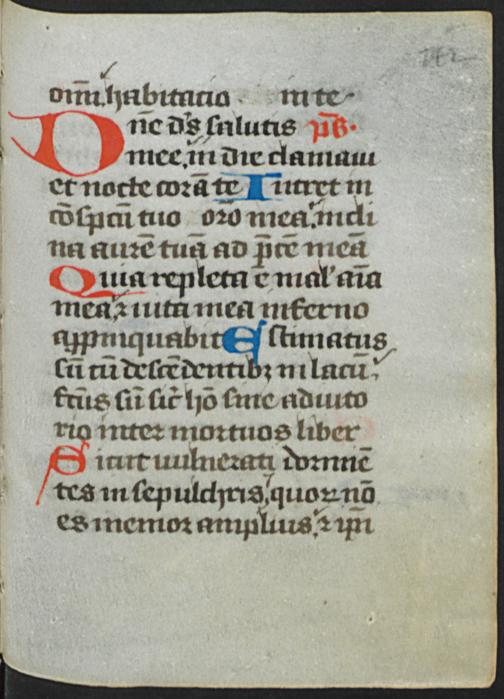 om̄i habitacio in te
Dn̄e ds̄ salutis ps̄
mee, in die clamaui
et nocte corā te Intret in
cōspcū tuo orō mea, incli
na aurē tuā ad p̄cē meā
Quia repleta ē mal' aīa
mea, ⁊ uita mea inferno
appinquabit Estimatus
sū cū descēdentibꝫ in lacū
fctūs sū sic̄ hō sine adiuto
rio inter mortuos liber
Sicut uulnerati dormiē
tes in sepulchris, quoꝝ nō
es memor amplius, ⁊ ip̄i